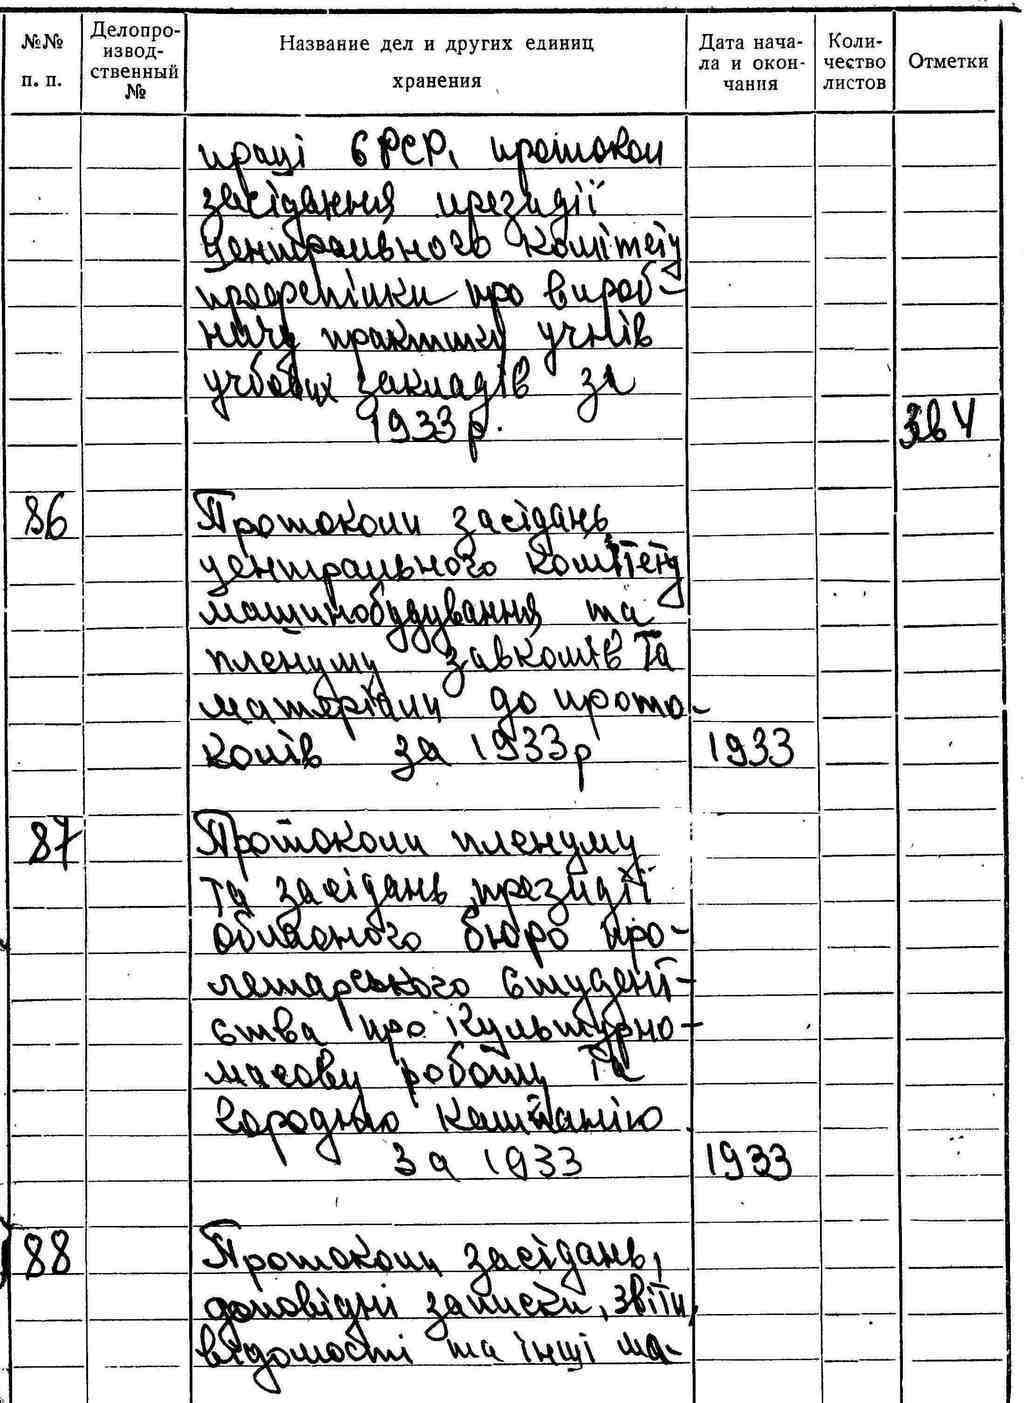 №№ п. п.
Делопро-
извод-
ственный
№
Название дел и других единиц
хранения
Дата нача-
ла и окон-
чания
Коли-
чество
листов
Отметки
праці БРСР, протокол
засідання президії
центрального комітету
профспілки про вироб-
ничу практику учнів
учбових закладів за
1933 р.
86
Протоколи засідань
центрального комітету
машинобудування та
пленуму завкомів та
матеріали до прото-
колів за 1933 р
1933
87
Протоколи пленуму
та засідань президії
обласного бюро про-
летарського студент-
ства про культурно-
масову роботу та
городню кампанію
за 1933
1933
88
Протоколи засідань,
доповідні записки, звіти,
відомості та інші ма-